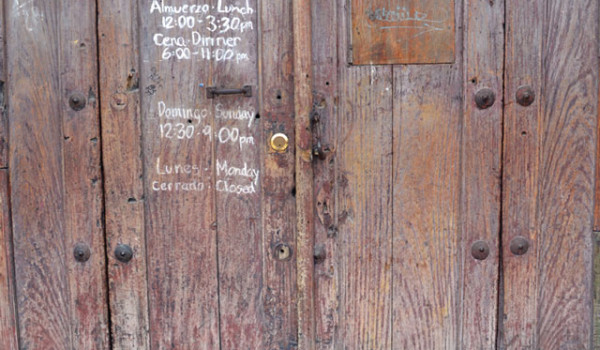 Almuerzo-Lunch
12:00-3:30pm
Cena-Dinner
6:00-11:00pm
Domingo-Sunday
12:30-9:00pm
Lunes-Monday
Cerrado-Closed